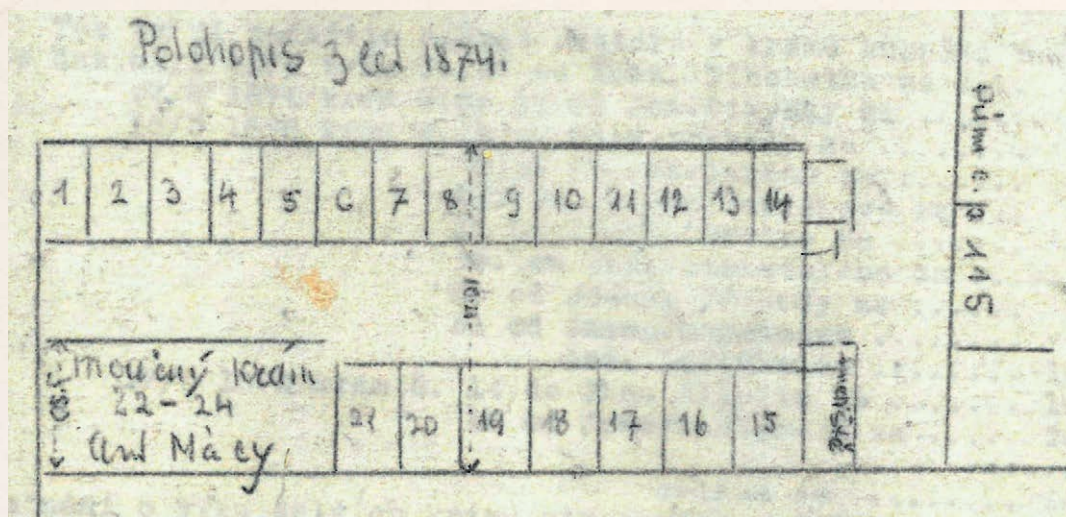 Polohopis z let 1874.
1 2 3 4 5 6 7 8 9 10 11 12 13 14
dům č. p 115
moučný krám
22-24
Ant Mácy
21 20 19 18 17 16 15